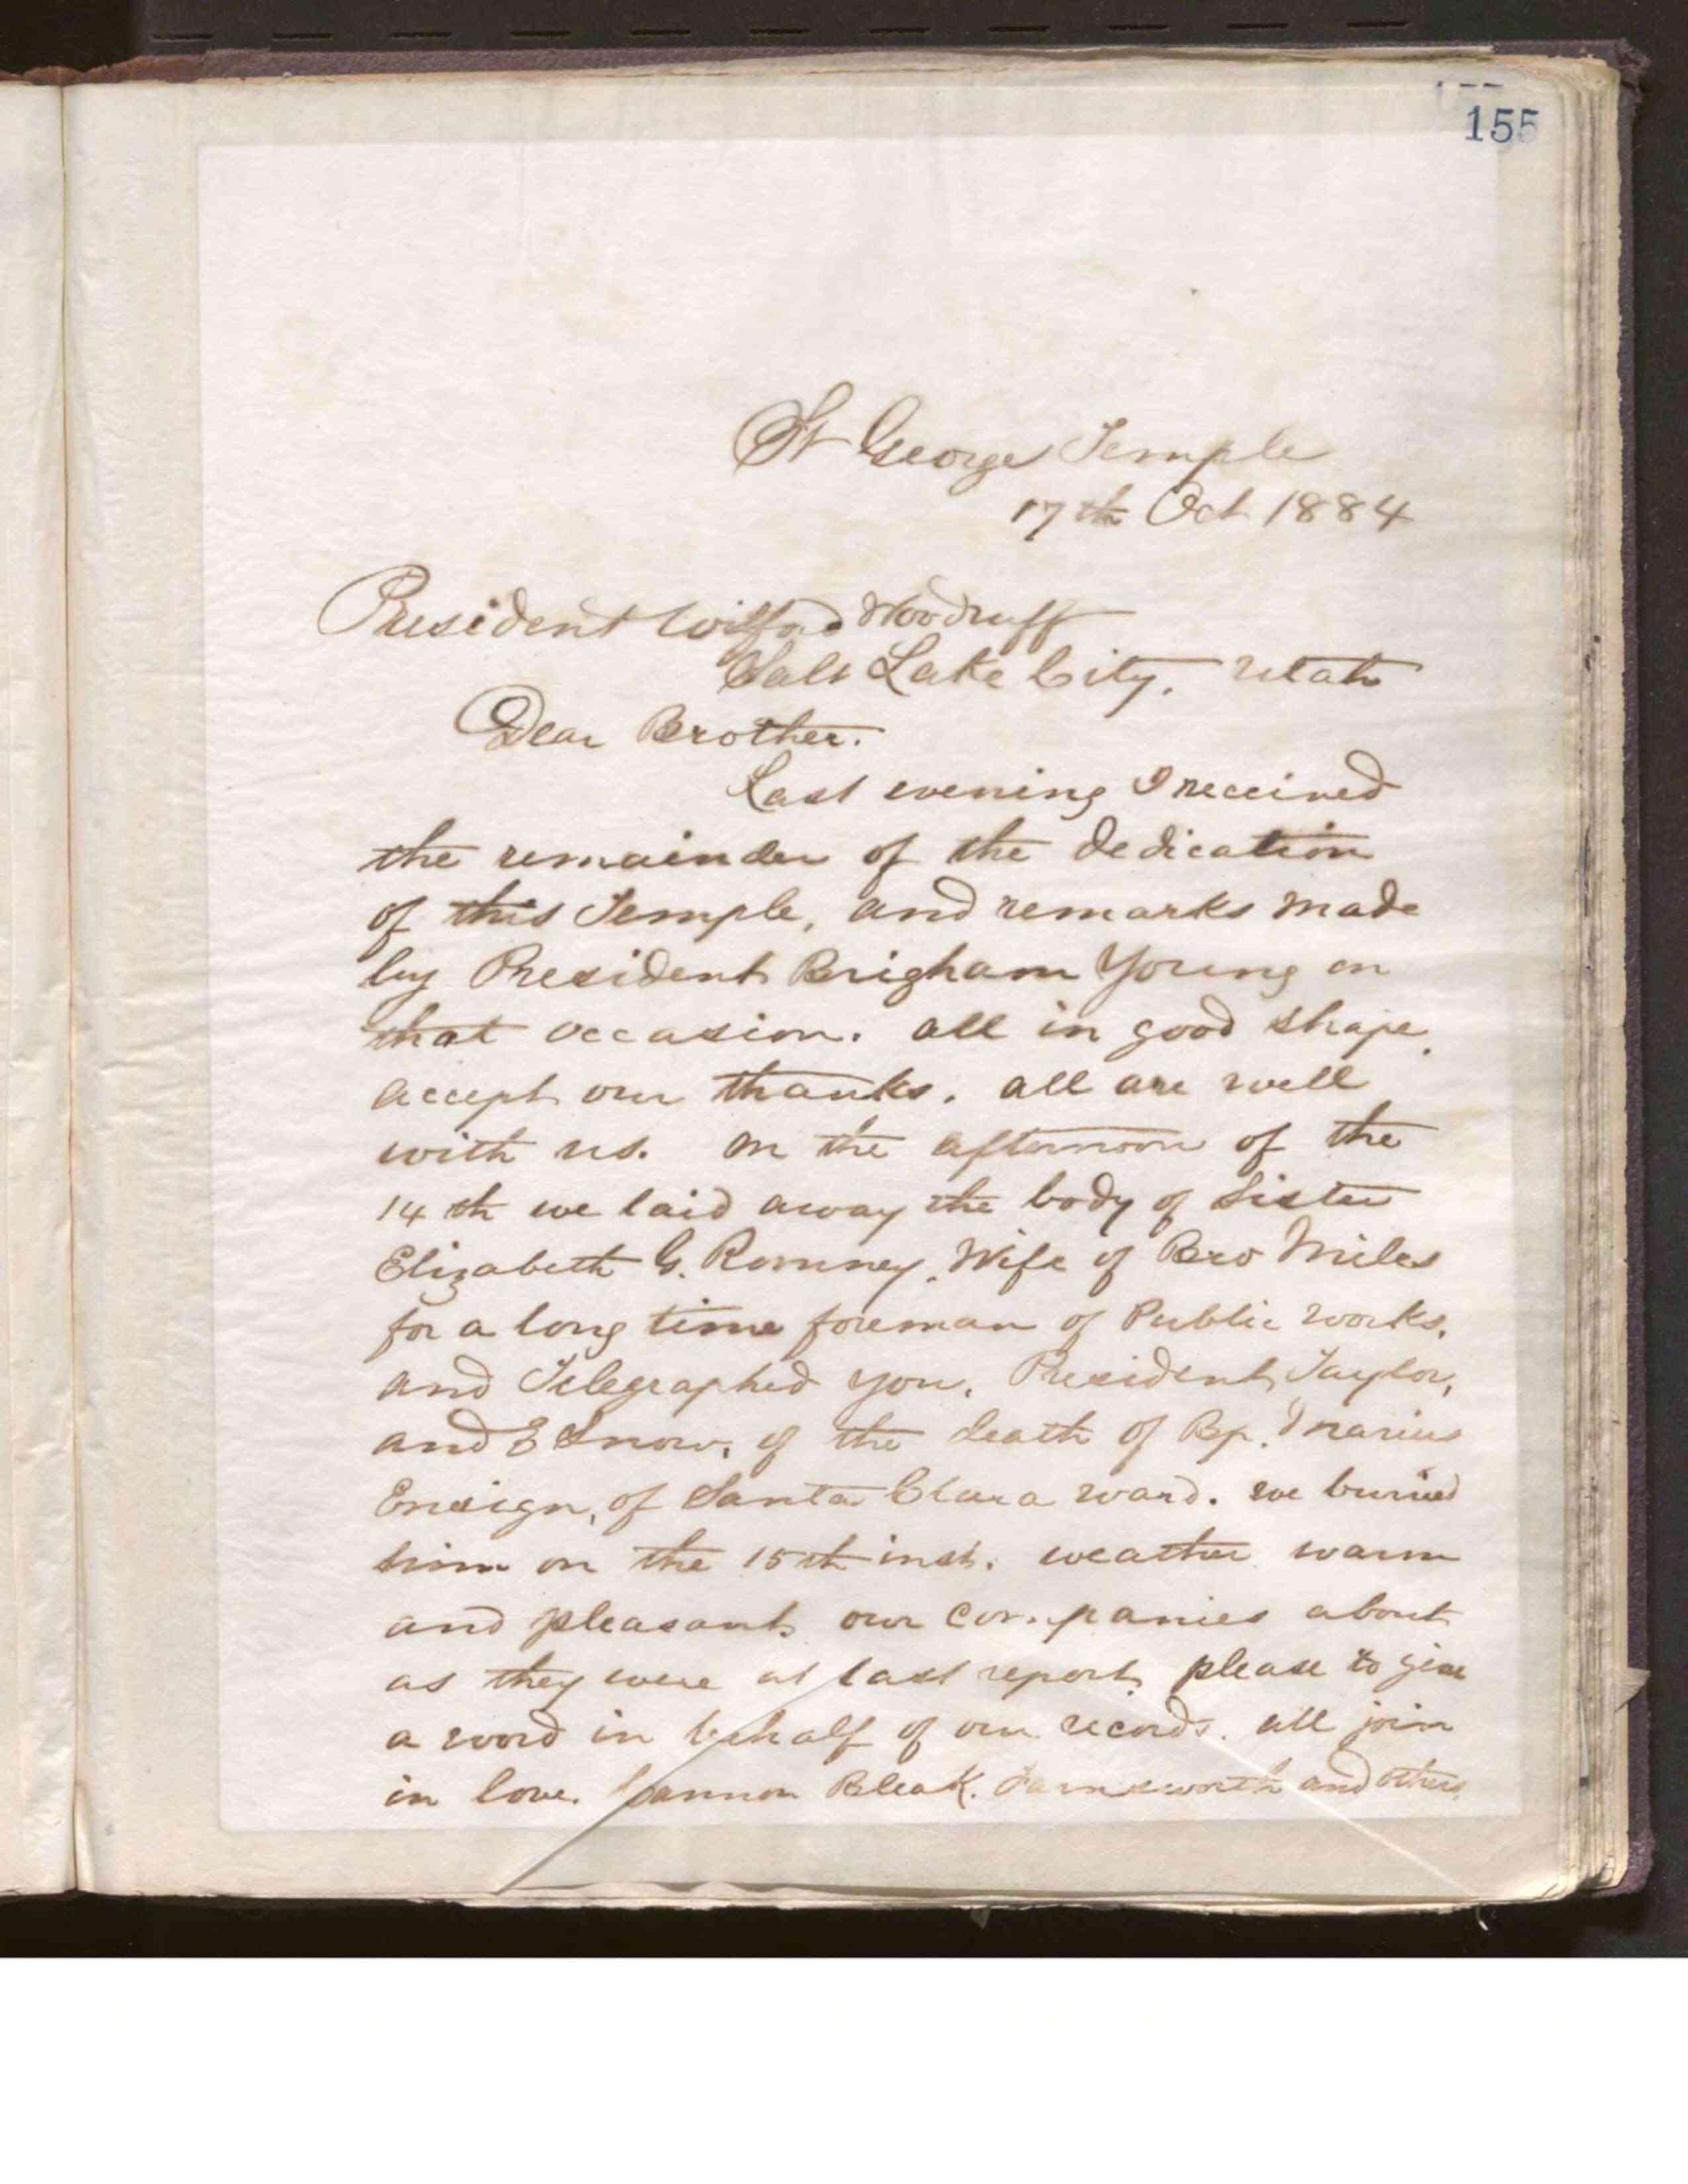 155
St George Temple
17th Oct 1884
President Wilford Woodruff
Salt Lake City, Utah
Dear Brother.
Last evening I received
the remainder of the dedication
of this Temple, and remarks made
by President Brigham Young on
that occasion. all in good shape.
accept our thanks. all are well
with us. on the afternoon of the
14th we laid away the body of Sister
Elizabeth G. Romney, Wife of Bro Miles
for a long time foreman of Public works.
and Telegraphed you, President Taylor,
and E Snow, of the death of Bp. Marius
Ensign, of Santa Clara ward. we buried
him on the 15th inst. weather warm
and pleasant. our companies about
as they were at last report. please to give
a word in behalf of our records. all join
in love. Cannon Bleak. Farnsworth and others.